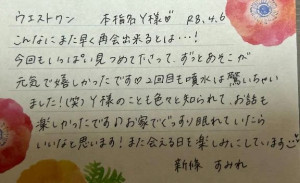 ウエストワン 本指名Y様♡ R8.4.6
こんなにまた早く再会出来るとは…!
今回もいっぱい見つめて下さって、ずっとあそこが
元気で嬉しかったです♡2回目も噴水は驚いちゃい
ました!(笑)Y様のことも色々と知られて、お話も
楽しかったです♪お家でぐっすり眠れていたら
いいなと思います!また会える日を楽しみにしています
新條 すみれ